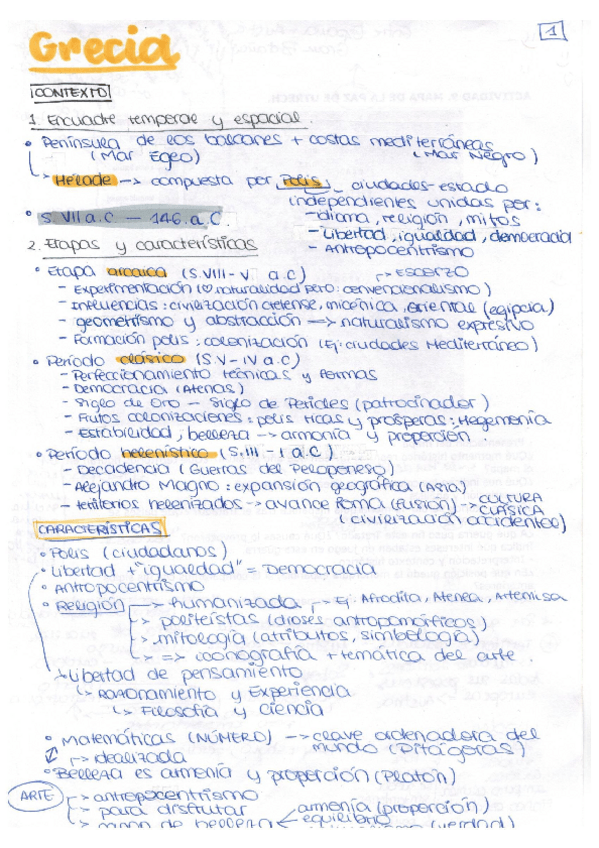 1
Grecia
CONTEXTO
1. Encuadre temporal y espacial.
• Península de los balcanes + costas mediterráneas
(Mar Egeo) (Mar Negro)
↳ Hélade → compuesta por Polis, ciudades-estado
independientes unidas por:
- idioma, religión, mitos
• S. VII a.C — 146. a.C.
- libertad, igualdad, democracia
- Antropocentrismo
2. Etapas y características
• Etapa arcaica (S.VIII-V a.C) → ESCORZO
- Experimentación (♡ naturalidad pero: convencionalismo)
- Influencias: civilización cretense, micénica, oriental (egipcia)
- geometrismo y abstracción → naturalismo expresivo
- Formación polis: colonización (Ej: ciudades Mediterráneo)
• Período clásico (S.V-IV a.C)
- Perfeccionamiento técnicas y formas
- Democracia (Atenas)
- Siglo de Oro - Siglo de Pericles (patrocinador)
- Frutos colonizaciones: polis ricas y prósperas: Hegemonía
- Estabilidad, belleza → armonía y proporción
• Período helenístico (S.III - I a.C)
- Decadencia (Guerras del Peloponeso)
- Alejandro Magno: expansión geográfica (Asia)
- territorios helenizados → avance Roma (fusión) → CULTURA CLÁSICA
(civilización occidental)
CARACTERÍSTICAS
• Polis (ciudadanos)
• Libertad + "igualdad" = Democracia
• Antropocentrismo
• Religión → humanizada → Ej: Afrodita, Atenea, Artemisa
→ politeístas (dioses antropomórficos)
→ mitología (atributos, simbología)
→ => iconografía - temática del arte
↳ Libertad de pensamiento
↳ Razonamiento y Experiencia
↳ Filosofía y ciencia
• Matemáticas (NÚMERO) → clave ordenadora del
mundo (Pitágoras)
→ idealizada
• Belleza es armonía y proporción (Platón)
ARTE → antropocentrismo
→ para disfrutar
armonía (proporción)
→ canon de belleza
equilibrio
(verdad)